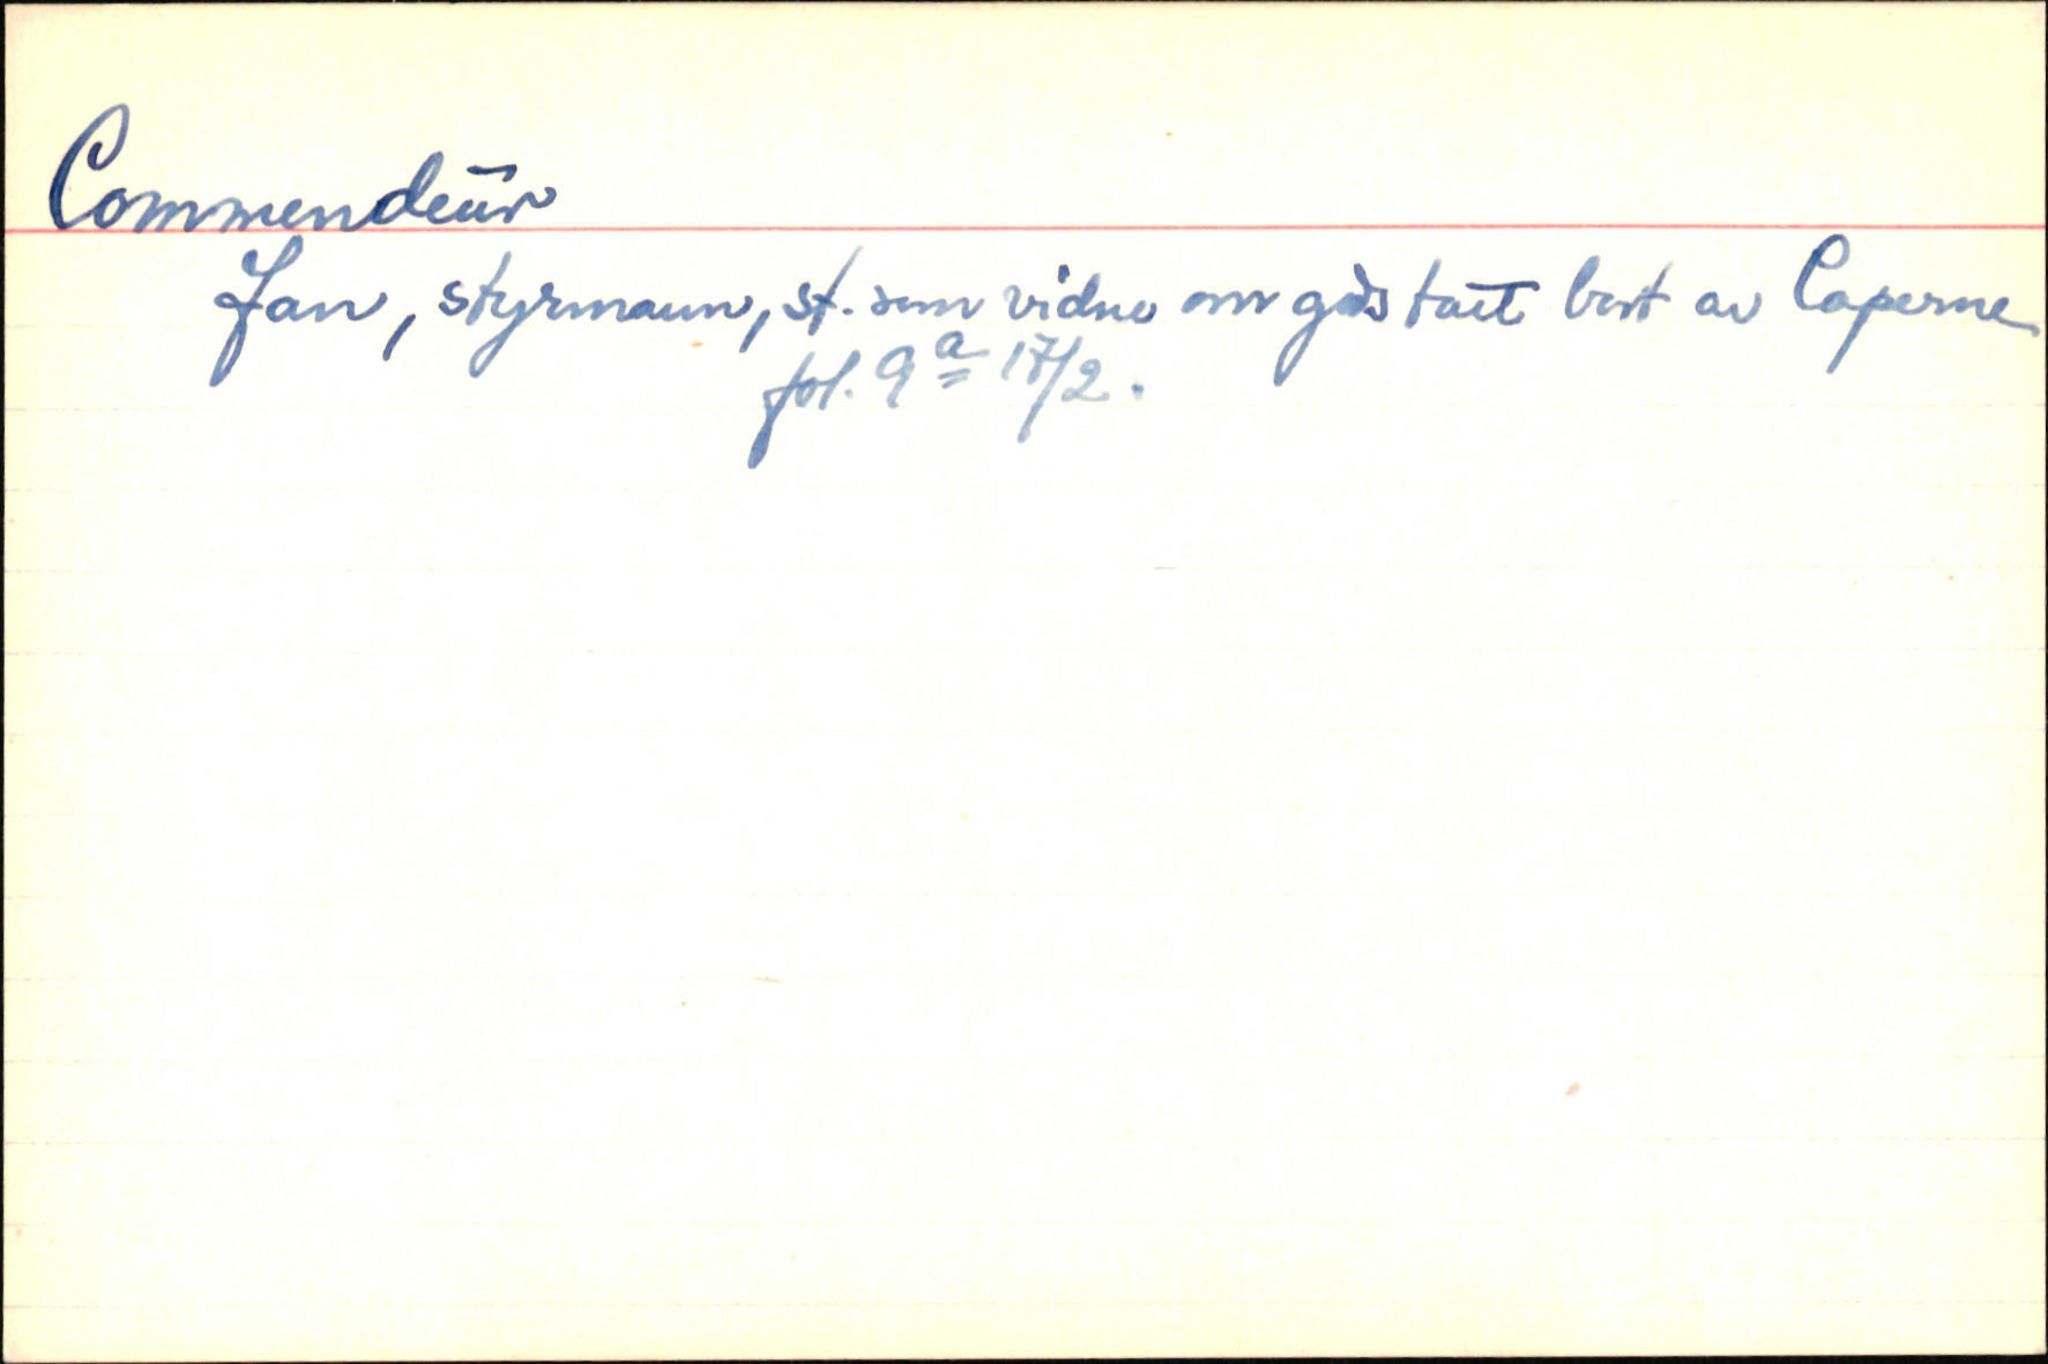 Commendeur
Jan, styrmann, st. som vidne om gods tatt bort av Caperne
fol. 9a 17/2.